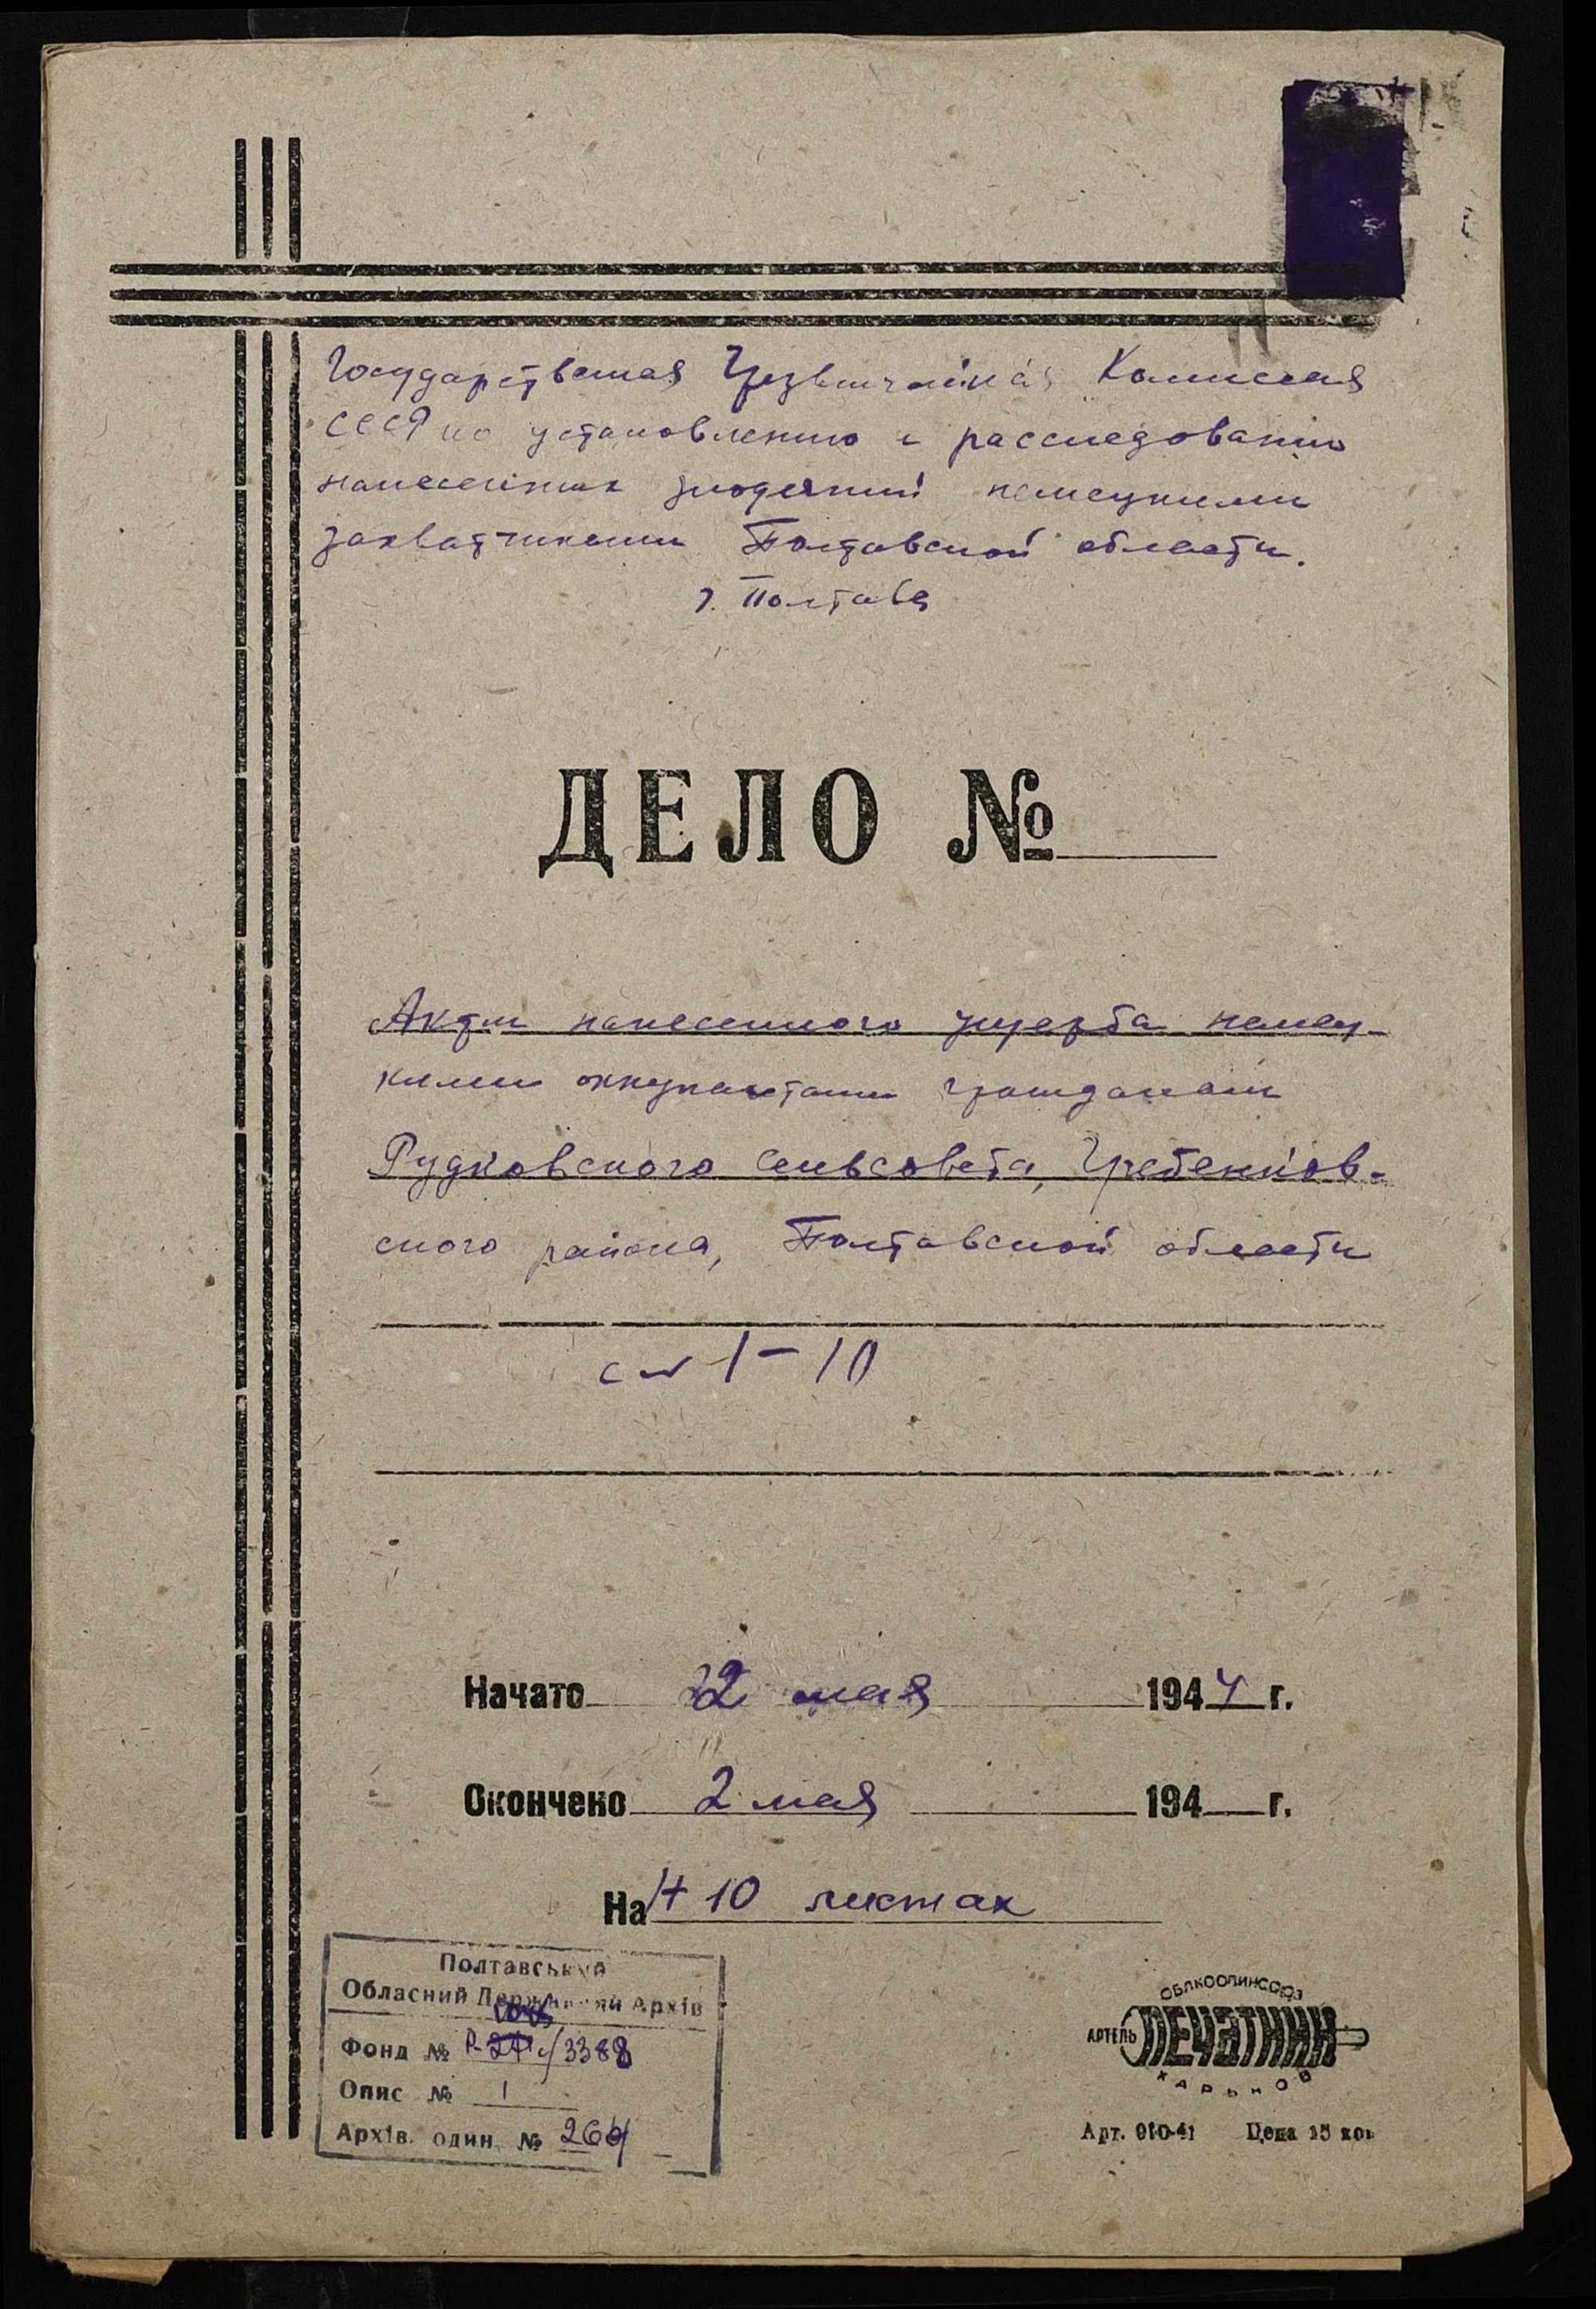 Государственая Чрезвычайная Комиссия
СССР по установлению и расследованию
нанесенных злодеяний немецкими
захватчиками Полтавской области.
г. Полтава
ДЕЛО №
Акты нанесенного ущерба немец-
кими оккупантами гражданам
Рудковского сельсовета, Гребенков-
ского района, Полтавской области
1-10
Начато 2 мая 1944 г.
Окончено 2 мая 194 г.
На 10 листах
Полтавський
Обласний Державний Архів
Фонд № Р- /3388
Опис № 1
Архів. один. № 264
ОБЛКООПИНСОЮЗ
АРТЕЛЬ ПЕЧАТНИК
ХАРЬКОВ
Арт. 910-41 Цена 15 коп